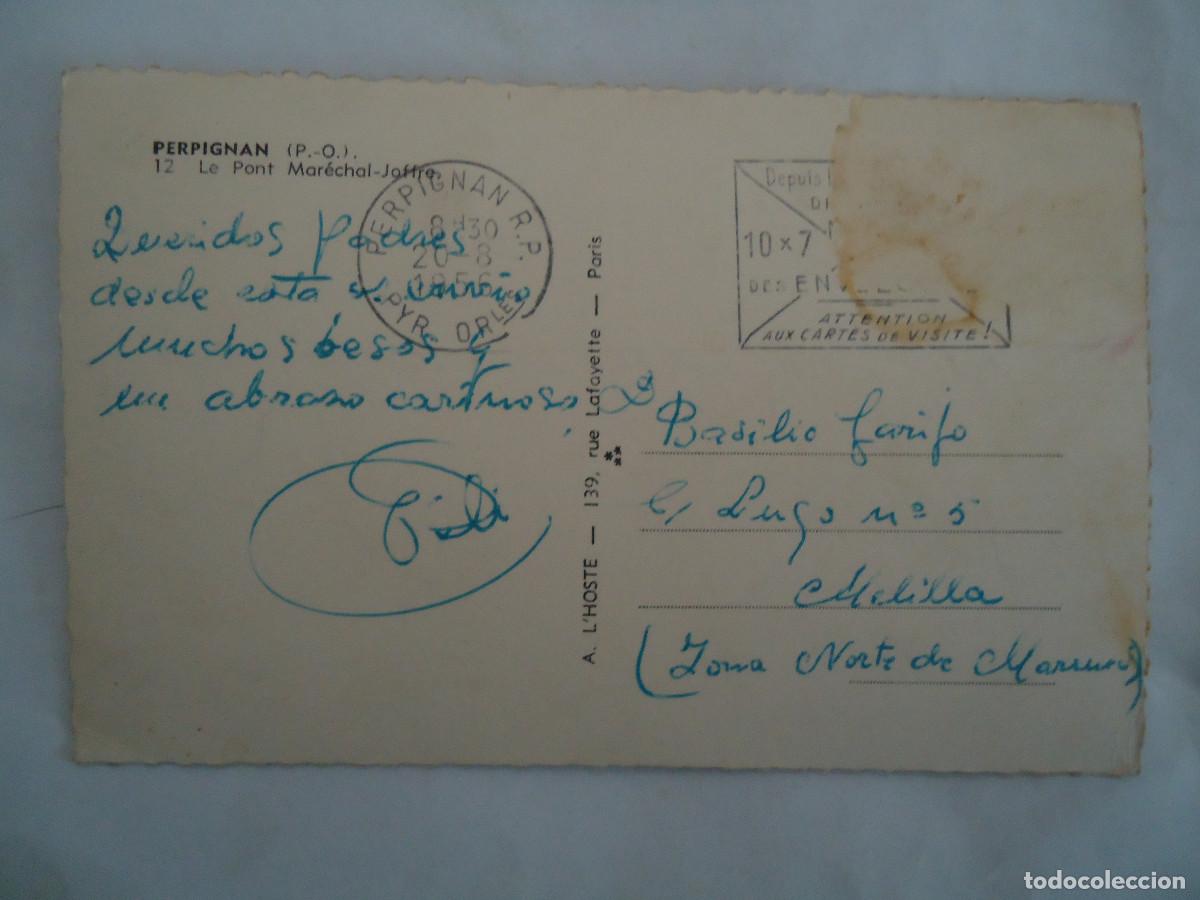 PERPIGNAN (P.-O.).
12 Le Pont Maréchal-Joffre.
PERPIGNAN R.P.
8H30
20-8
1956
PYR. ORLES
Queridos Padres
desde esta os envio
muchos besos y
un abrazo cariñoso
A. L'HOSTE — 139, rue Lafayette — Paris
Depuis
10 x 7
DES
ATTENTION
AUX CARTES DE VISITE !
Dn
Basilio Garijo
C/ Lugo nº 5
Melilla
(Zona Norte de Marruecos)
todocoleccion